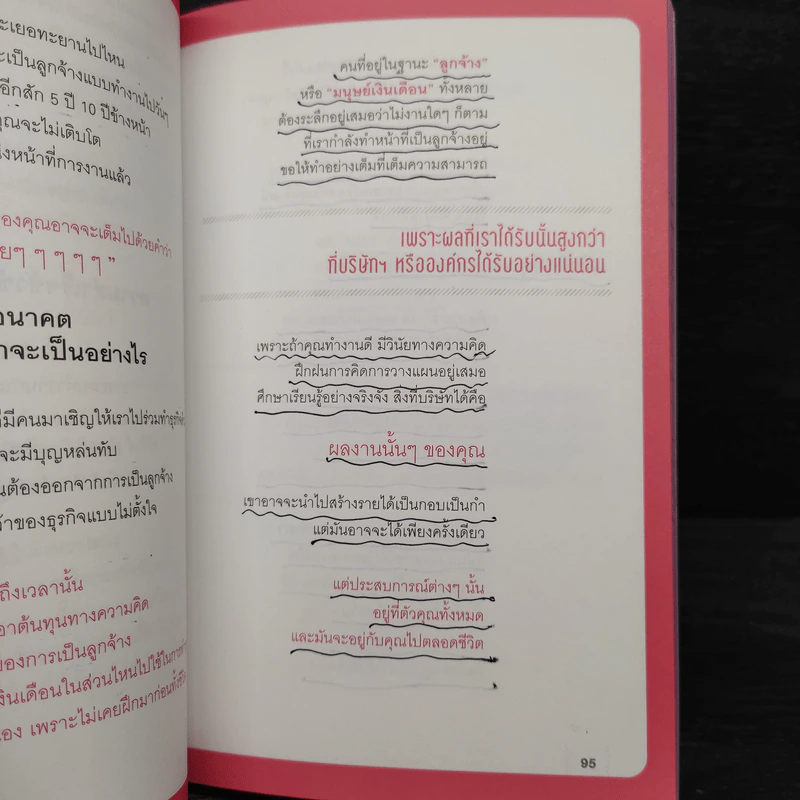 ะเยอทะยานไปไหน
ะเป็นลูกจ้างแบบทำงานไปวันๆ
อีกสัก 5 ปี 10 ปีข้างหน้า
คุณจะไม่เติบโต
หน้าที่การงานแล้ว
องคุณอาจจะเต็มไปด้วยคำว่า
ยๆ ๆ ๆ ๆ ๆ”
อนาคต
จะเป็นอย่างไร
มีคนมาเชิญให้เราไปร่วมทำธุรกิจ
จะมีบุญหล่นทับ
ต้องออกจากการเป็นลูกจ้าง
ของธุรกิจแบบไม่ตั้งใจ
ถึงเวลานั้น
อาต้นทุนทางความคิด
ของการเป็นลูกจ้าง
เงินเดือนในส่วนไหนไปใช้ในการ
เพราะไม่เคยฝึกมาก่อนทั้งชีวิต
คนที่อยู่ในฐานะ “ลูกจ้าง”
หรือ “มนุษย์เงินเดือน” ทั้งหลาย
ต้องระลึกอยู่เสมอว่าไม่งานใดๆ ก็ตาม
ที่เรากำลังทำหน้าที่เป็นลูกจ้างอยู่
ขอให้ทำอย่างเต็มที่เต็มความสามารถ
เพราะผลที่เราได้รับนั้นสูงกว่า
ที่บริษัทฯ หรือองค์กรได้รับอย่างแน่นอน
เพราะถ้าคุณทำงานดี มีวินัยทางความคิด
ฝึกฝนการคิดการวางแผนอยู่เสมอ
ศึกษาเรียนรู้อย่างจริงจัง สิ่งที่บริษัทได้คือ
ผลงานนั้นๆ ของคุณ
เขาอาจจะนำไปสร้างรายได้เป็นกอบเป็นกำ
แต่มันอาจจะได้เพียงครั้งเดียว
แต่ประสบการณ์ต่างๆ นั้น
อยู่ที่ตัวคุณทั้งหมด
และมันจะอยู่กับคุณไปตลอดชีวิต
95